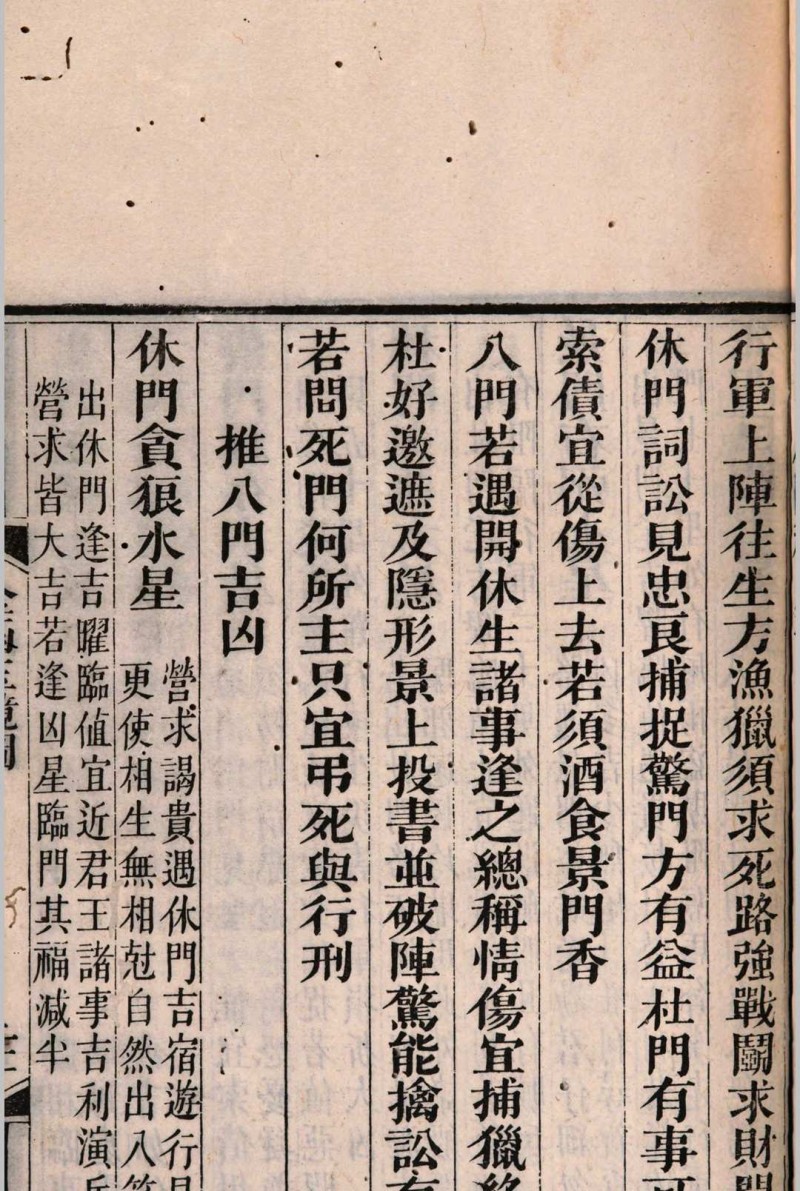 行軍上陣往生方漁獵須求死路強戰鬭求財
休門詞訟見忠良捕捉驚門方有益杜門有事
索債宜從傷上去若須酒食景門香
八門若遇開休生諸事逢之總稱情傷宜捕獵
杜好邀遮及隱形景上投書並破陣驚能擒訟有
若問死門何所主只宜弔死與行刑
推八門吉凶
休門貪狼水星
營求謁貴遇休門吉宿遊行
更使相生無相尅自然出入
出休門逢吉曜臨值宜近君王諸事吉利演
營求皆大吉若逢凶星臨門其福減半